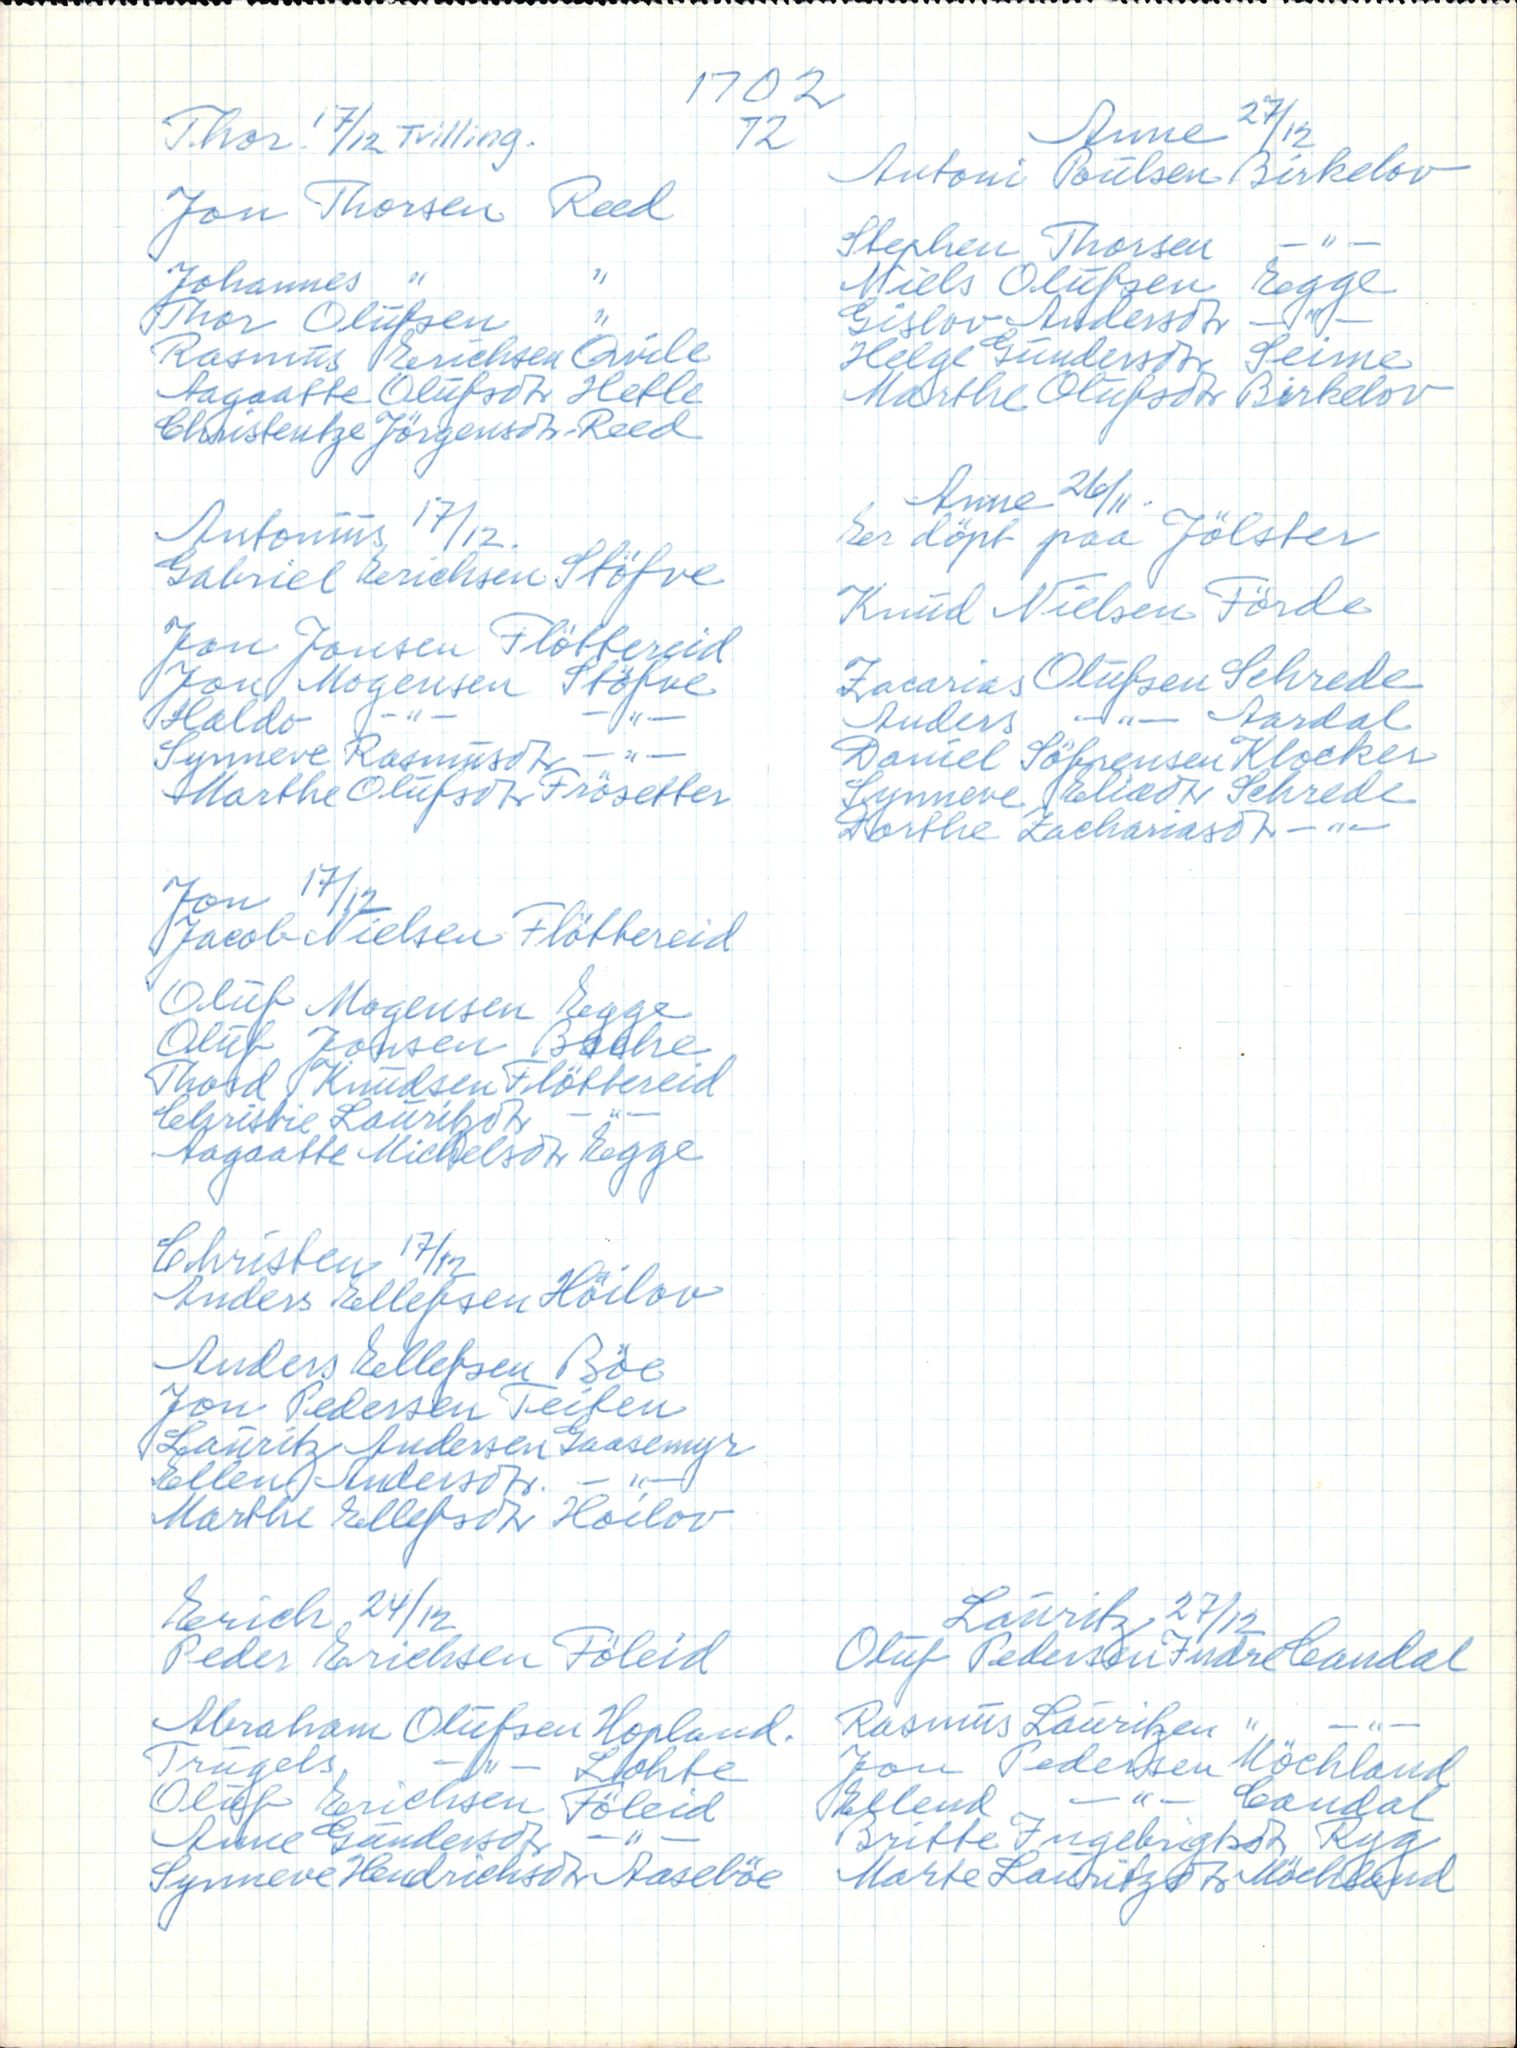 1702
72
Thor. 17/12 Tvilling.
Jon Thorsen Reed
Johannes " "
Thor Olüfsen "
Rasmüs Erichsen Qvile
Aagaatte Olüfsdtr Hetle
Christentze Jörgensdtr Reed
Antoniüs 17/12.
Gabriel Erichsen Stöfve
Jon Jonsen Flöttereid
Jon Mogensen Stöfve
Haldo -"- -"-
Synneve Rasmüsdtr -"-
Marthe Olüfsdtr Frösetter
Jon 17/12
Jacob Nielsen Flöttereid
Olüf Mogensen Egge
Olüf Jonsen Bache
Thord Knüdsen Flöttereid
Christie Laüritzdtr -"-
Aagaatte Michelsdtr Egge
Christen 17/12
Anders Ellefsen Höilov
Anders Ellefsen Böe
Jon Pedersen Teiten
Laüritz Andersen Gaasemyr
Ellen Andersdtr. -"-
Marthe Ellefsdtr Höilov
Erich 24/12
Peder Erichsen Föleid
Abraham Olüfsen Hopland.
Trügels -"- Lohte
Olüf Erichsen Föleid
Anne Gündersdtr -"-
Synneve Hendrichsdtr Aaseböe
Anne 27/12
Antoni Poülsen Birkelov
Stephen Thorsen -"-
Niels Olüfsen Egge
Gislov Andersdtr -"-
Helge Gündersdtr Seime
Marthe Olüfsdtr Birkelov
Anne 26/11.
Er döpt paa Jölster
Knüd Nielsen Förde
Zacarias Olüfsen Schrede
Anders -"- Aardal
Daniel Söfrensen Klocker
Synneve Eliædtr Schrede
Dorthe Zachariasdtr -"-
Laüritz 27/12
Olüf Pedersen Indre Candal
Rasmüs Laüritzen " -"-
Jon Pedersen Möchland
Ellend -"- Candal
Britte Ingebrigtsdtr Ryg
Marte Laüritzdtr Möchland